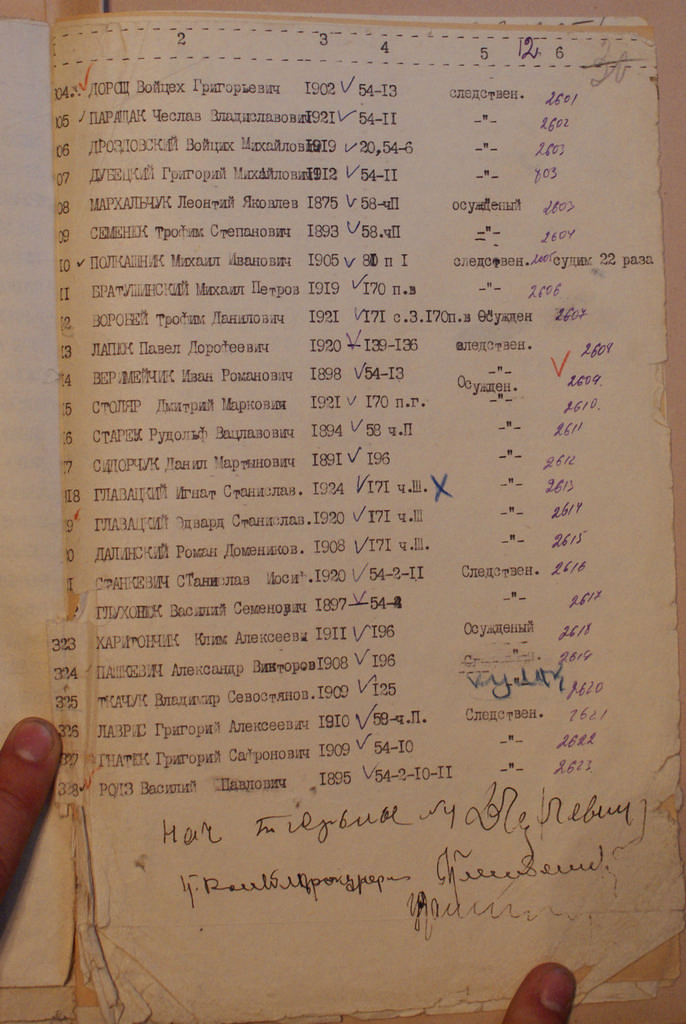 2 3 4 5 12 6
30
04. ДОРОЩ Войцех Григорьевич I902 54-I3 следствен. 2601
05 ПАРАЩАК Чеслав Владиславович I92I 54-II -"- 2602
06 ДРОЗДОВСКИЙ Войцих Михайлович I9I9 20,54-6 -"- 2603
07 ДУБЕЦКИЙ Григорий Михайлович I9I2 54-II -"- 803
08 МАРХАЛЬЧУК Леонтий Яковлев I875 58-чП осужденый 2603
09 СЕМЕНЮК Трофим Степанович I893 58.чП -"- 2604
I0 ПОЛКАШНИК Михаил Иванович I905 80 п I следствен. 2605 судим 22 раза
II БРАТУШИНСКИЙ Михаил Петров I9I9 I70 п.в -"- 2606
I2 ВОРОБЕЙ Трофим Данилович I92I I7I с.3.I70п.в Осужден 2607
I3 ЛАПЮК Павел Дорофеевич I920 I39-I36 следствен. 2608
I4 ВЕРИМЕЙЧИК Иван Романович I898 54-I3 -"- Осужден. 2609.
I5 СТОЛЯР Дмитрий Маркович I92I I70 п.г. -"- 2610.
I6 СТАРЕК Рудольф Вацлавович I894 58 ч.П -"- 2611
I7 СИДОРЧУК Данил Мартынович I89I I96 -"- 2612
3I8 ГЛАВАЦКИЙ Игнат Станислав. I924 I7I ч.Ш. -"- 2613
I9 ГЛАВАЦКИЙ Эдвард Станислав. I920 I7I ч.Ш -"- 2614
0 ДАЛИНСКИЙ Роман Домеников. I908 I7I ч.Ш. -"- 2615
I СТАНКЕВИЧ Станислав Иосиф. I920 54-2-II Следствен. 2616
ГЛУХОНЮК Василий Семенович I897 54-2 -"- 2617
323 ХАРИТОНЧИК Клим Алексееви I9II I96 Осужденый 2618
324 ПАШКЕВИЧ Александр Викторов I908 I96 -"- 2619
325 ТКАЧУК Владимир Севостянов. I909 I25 2620
326 ЛАВРИС Григорий Алексеевич I9I0 58-ч.П. Следствен. 2621
327 ГНАТЮК Григорий Сафронович I909 54-I0 -"- 2622
328 РОДЗ Василий Павлович I895 54-2-I0-II -"- 2623
Нач тюрьмы